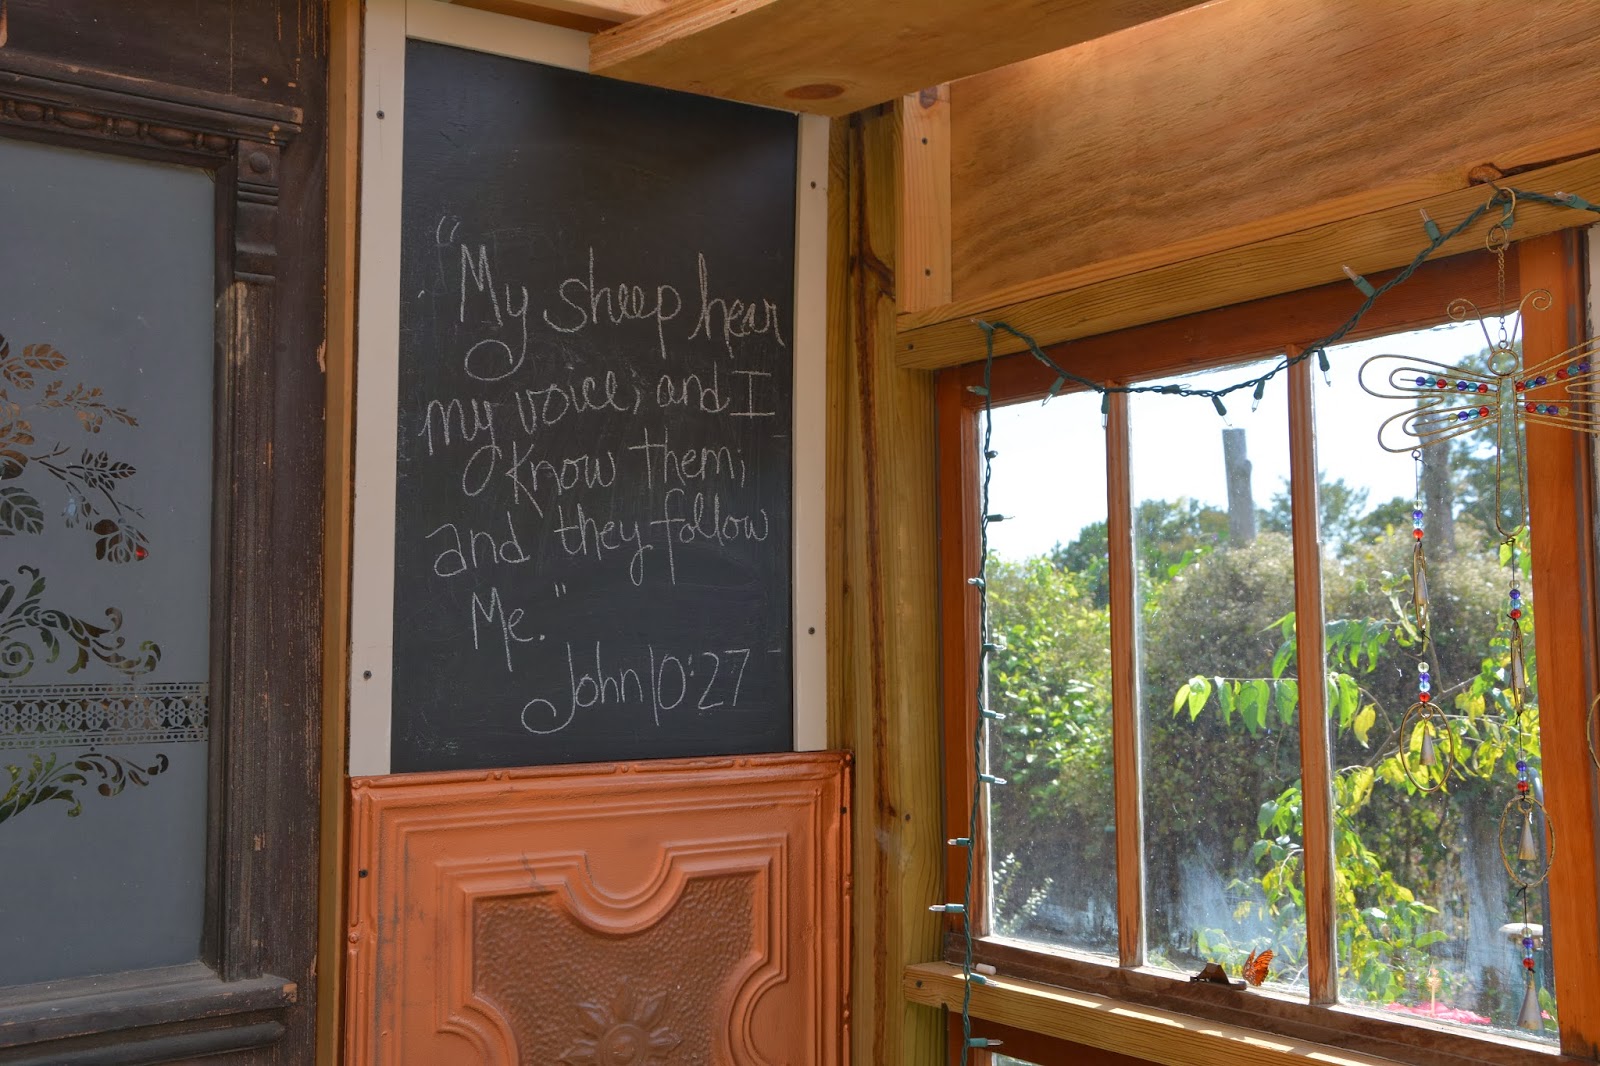 "My sheep hear
my voice, and I
know them;
and they follow
Me."
John 10:27